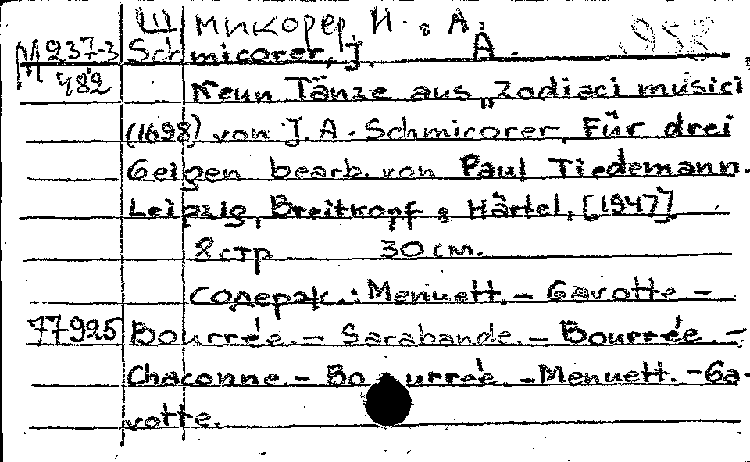 Шмикорер, И. А.
М 237-3 Schmicorer, J. A.
М 482
Neun Tänze aus „Zodiaci musici
(1698) von J. A. Schmicorer. Für drei
Geigen bearb. von Paul Tiedemann.
Leipzig, Breitkopf & Härtel, [1947]
8 стр 30 см.
Содерж.: Menuett. – Gavotte –
77925 Bourrée. – Sarabande. – Bourrée. –
Chaconne. – Bourrée. – Menuett. – Ga-
votte.